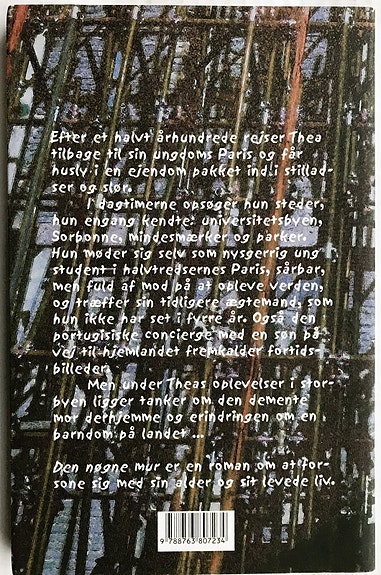 Efter et halvt århundrede rejser Thea
tilbage til sin ungdoms Paris og får
husly i en ejendom pakket ind i stillad-
ser og slør.
I dagtimerne opsøger hun steder,
hun engang kendte: universitetsbyen,
Sorbonne, mindesmærker og parker.
Hun møder sig selv som nysgerrig ung
student i halvtredsernes Paris, sårbar,
men fuld af mod på at opleve verden,
og træffer sin tidligere ægtemand, som
hun ikke har set i fyrre år. Også den
portugisiske concierge med en søn på
vej til hjemlandet fremkalder fortids-
billeder.
Men under Theas oplevelser i stor-
byen ligger tanker om den demente
mor derhjemme og erindringen om en
barndom på landet ...
Den nøgne mur er en roman om at for-
sone sig med sin alder og sit levede liv.
9 788763 807234